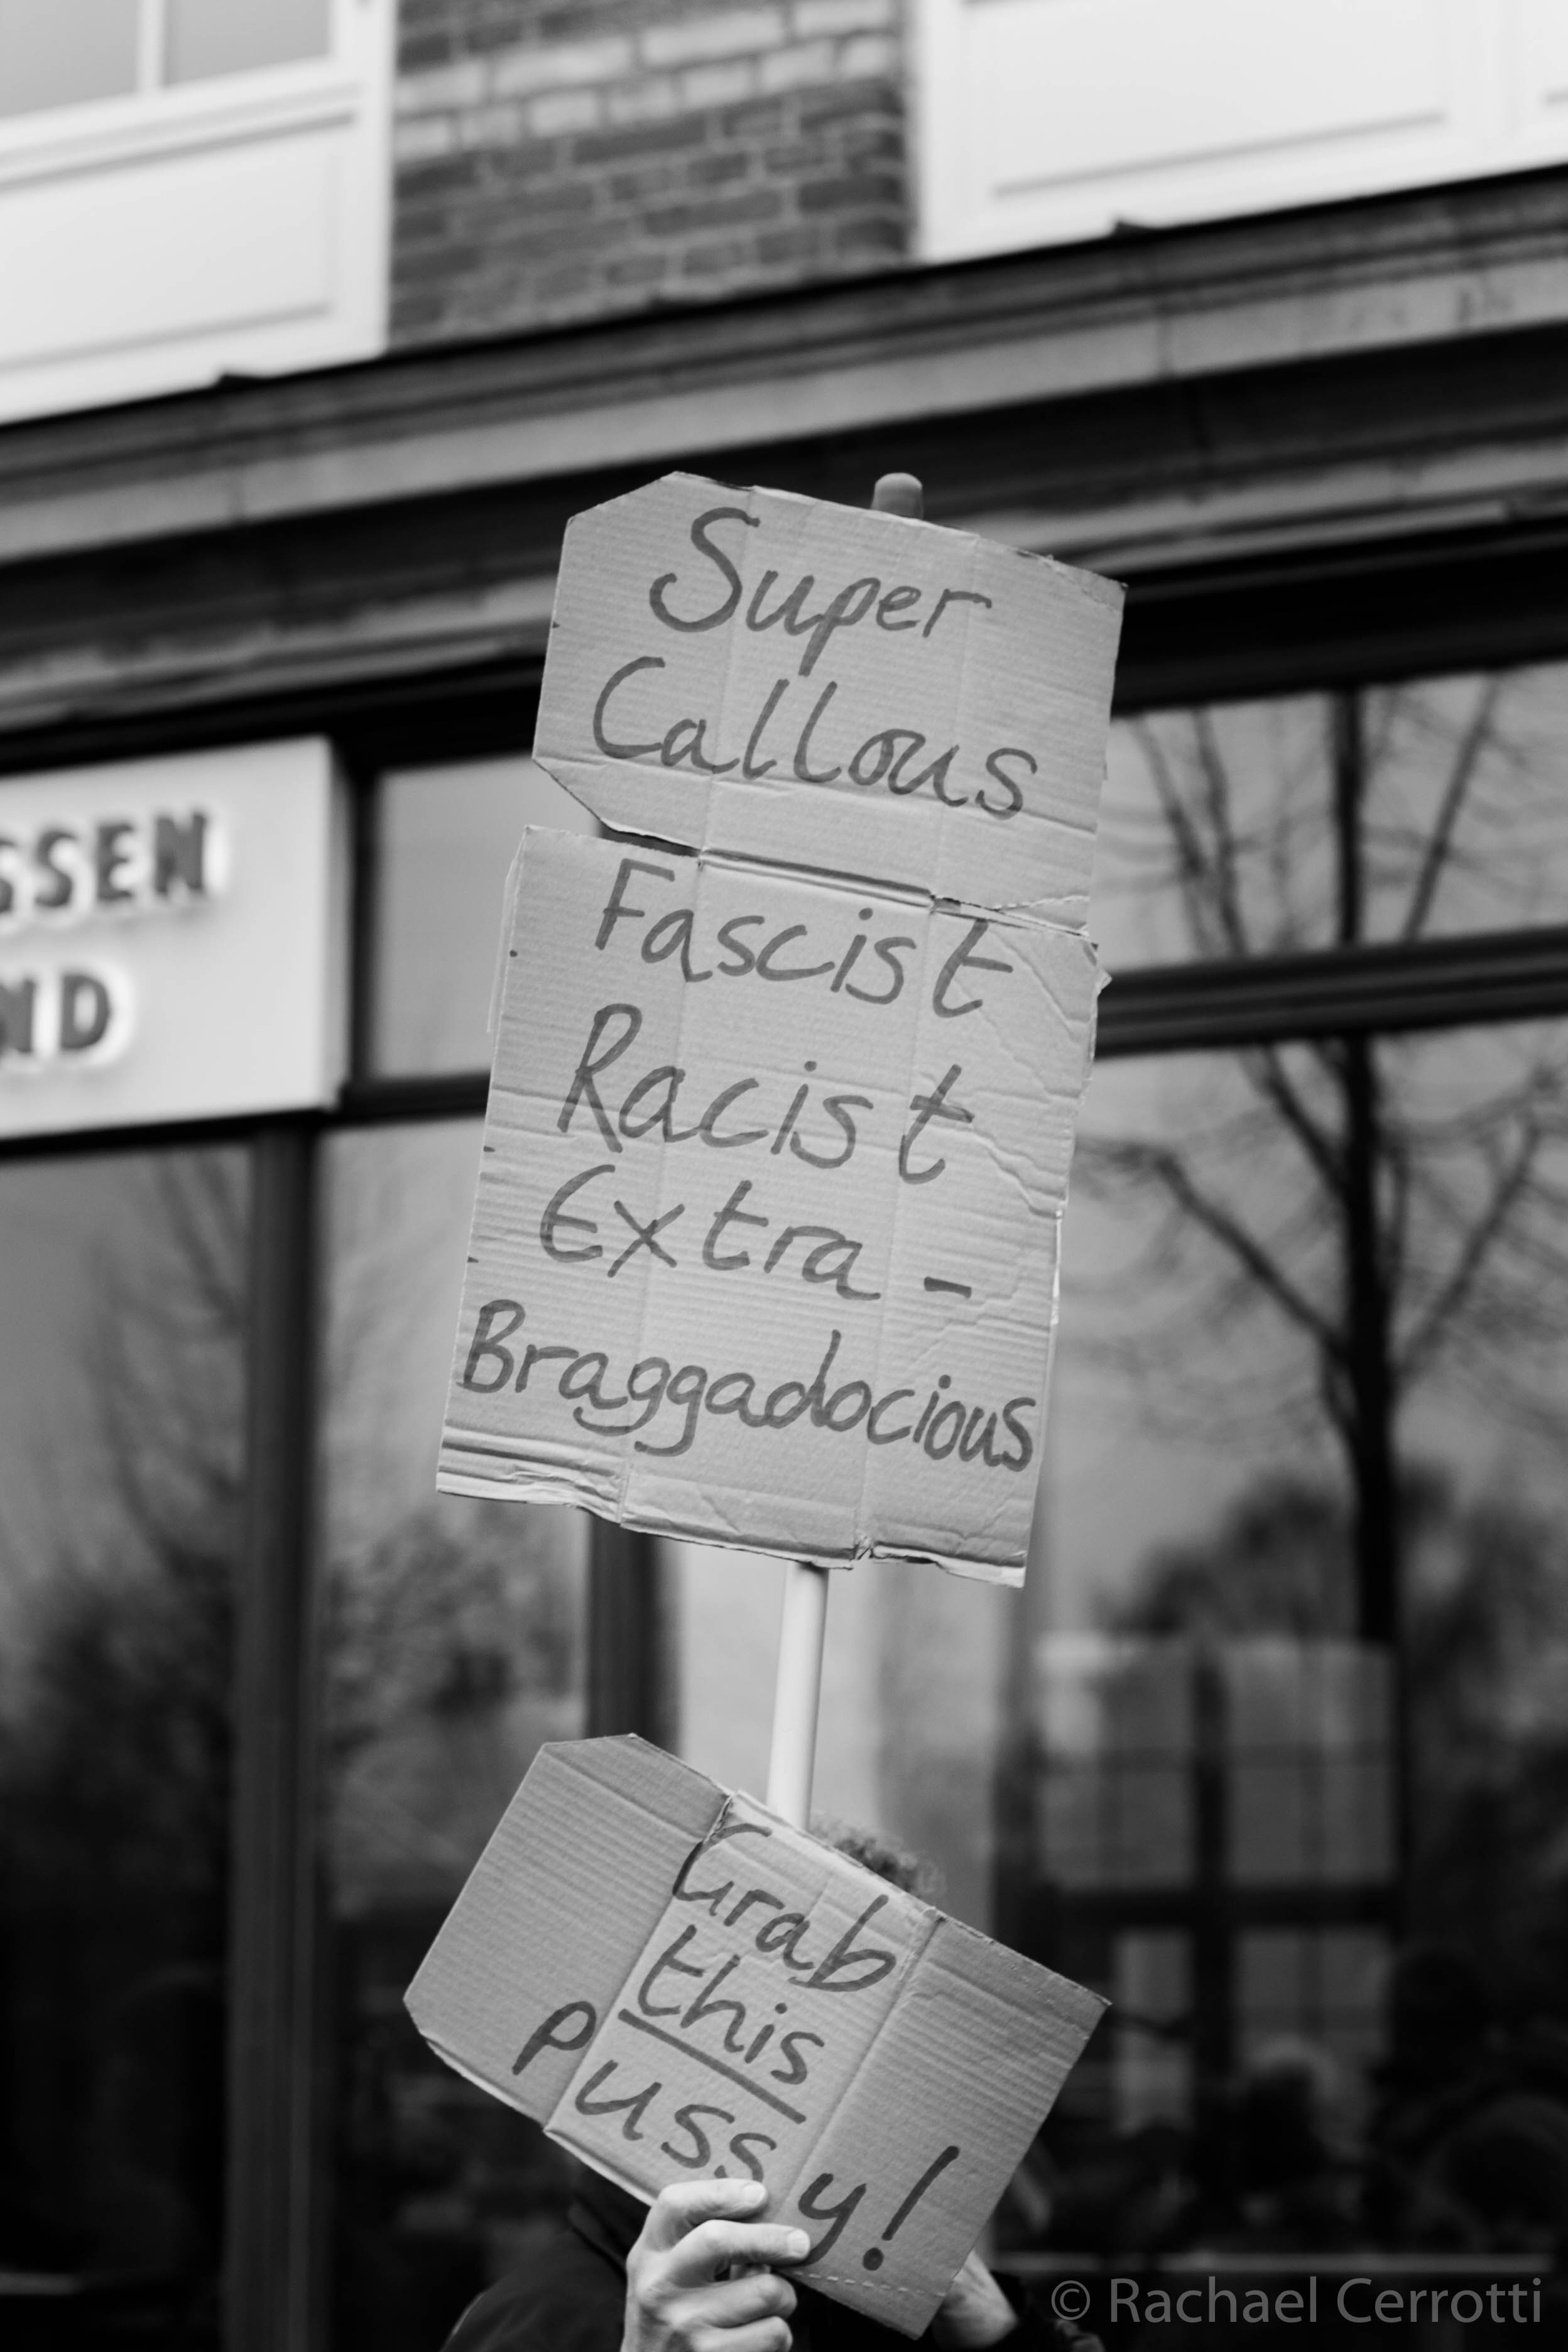 SSEN
ND
Super
Callous
Fascist
Racist
Extra-
Braggadocious
Grab
this
pussy!
© Rachael Cerrotti